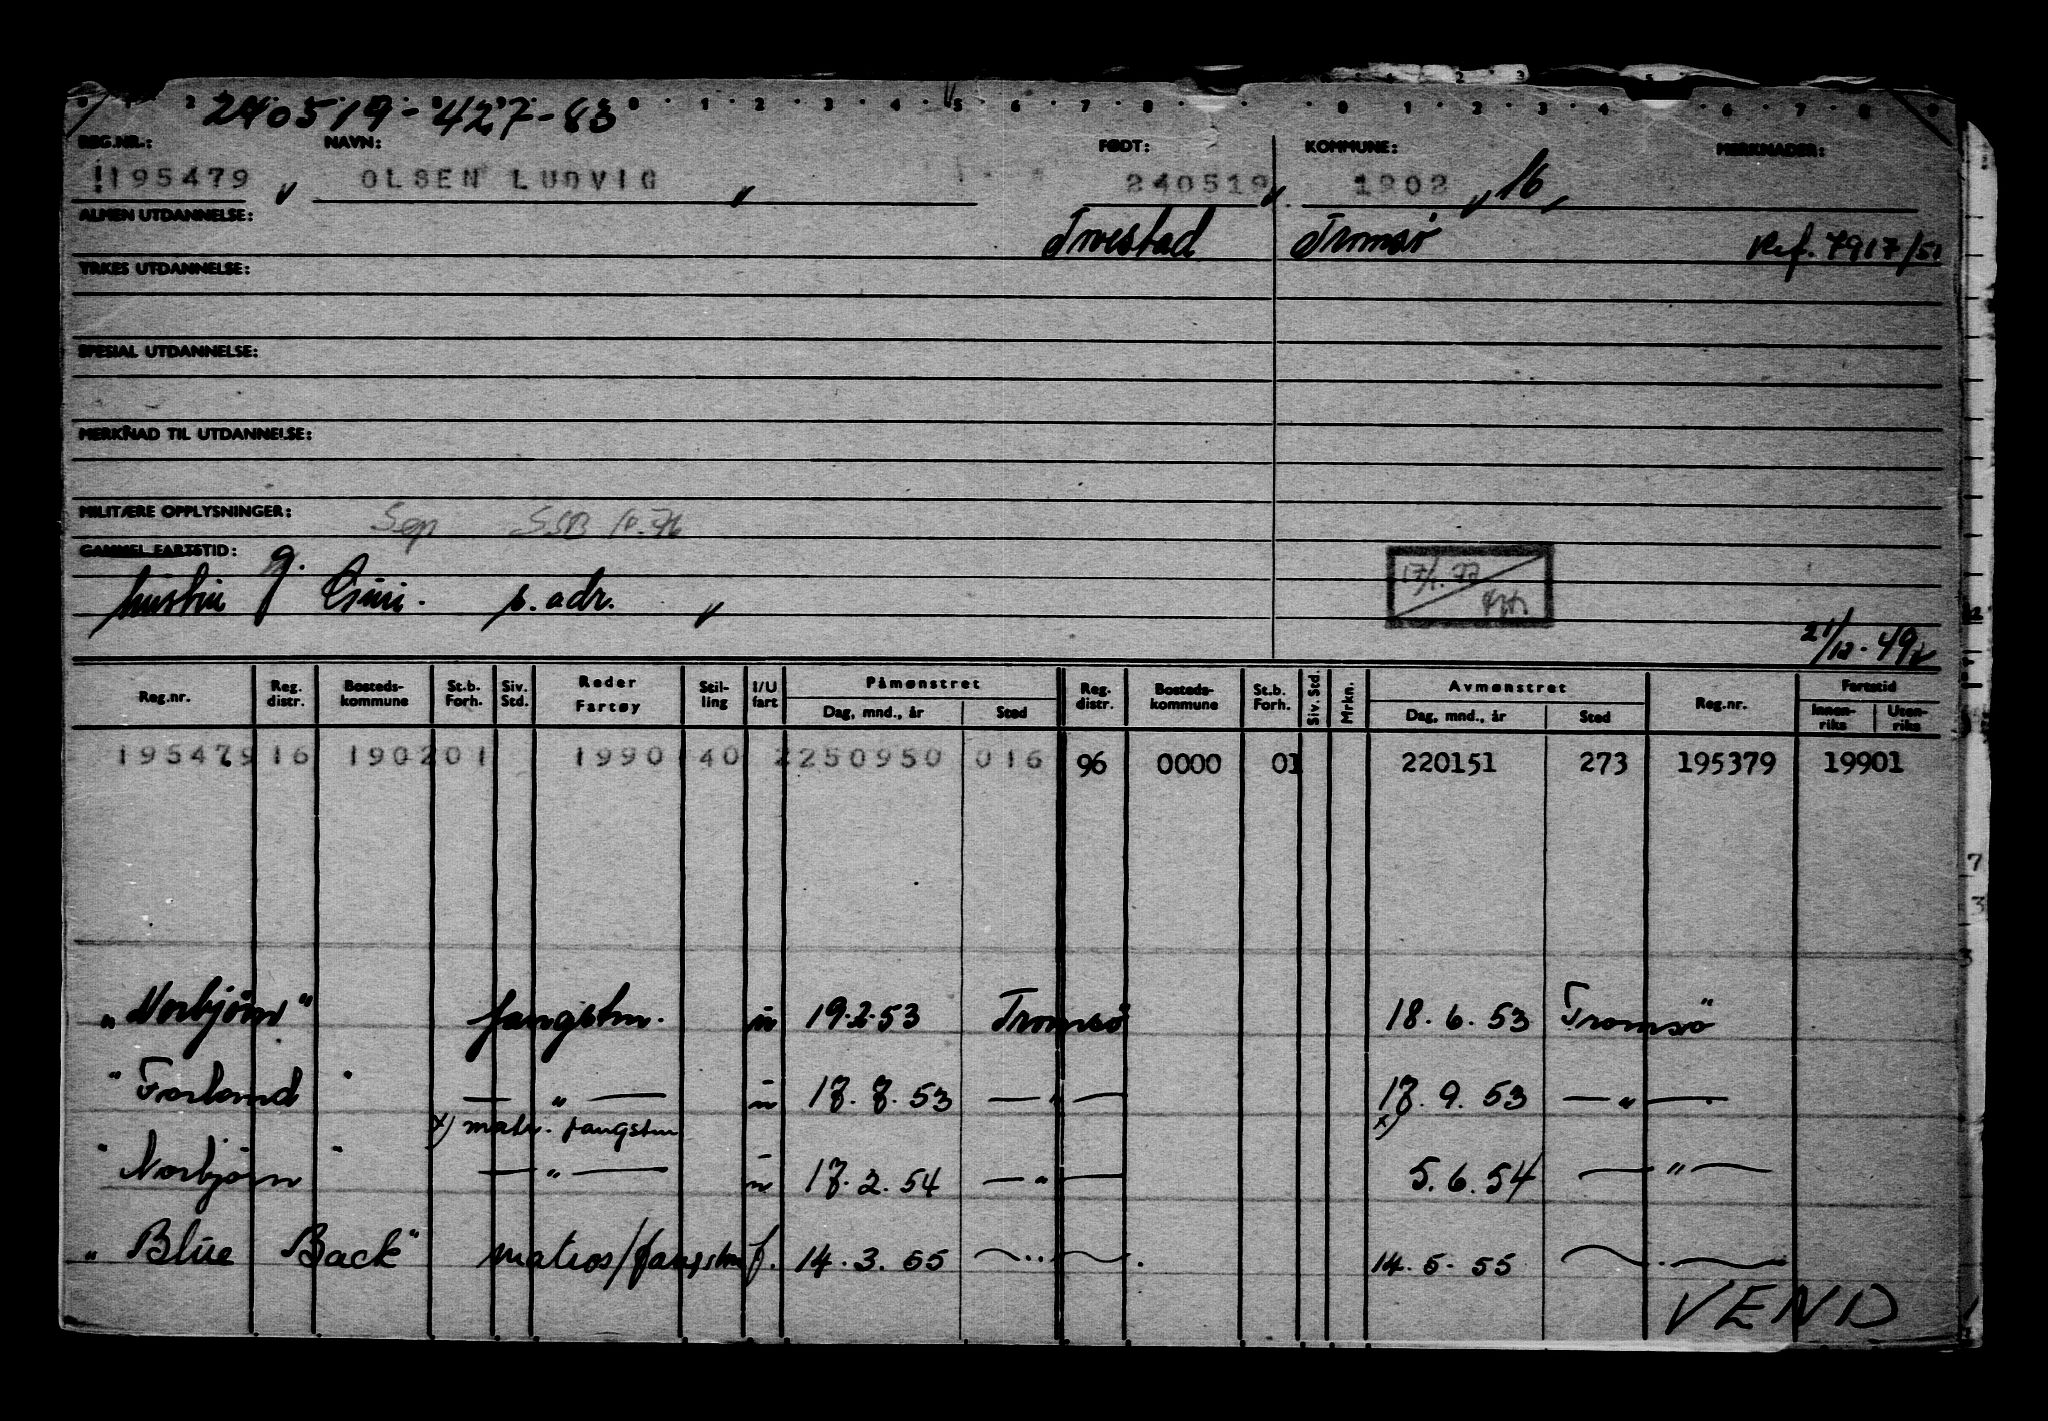 240519-427-83
REG.NR.: NAVN: FØDT: KOMMUNE: MERKNADER:
195479 OLSEN LUDVIG 240519 1902 16
ALMEN UTDANNELSE: Tromsö Ref. 7917/51
YRKES UTDANNELSE:
SPESIAL UTDANNELSE:
MERKNAD TIL UTDANNELSE:
MILITÆRE OPPLYSNINGER: SSB 10.76
GAMMEL FARTSTID:
hustru g. s. adr.
21/12-49
Reg.nr. Reg. distr. Bosteds-kommune St.b. Forh. Siv. Std. Reder Fartøy Stil-ling I/U fart Påmønstret Dag, mnd., år Sted Reg. distr. Bosteds-kommune St.b. Forh. Siv. Std. Mrkn. Avmønstret Dag, mnd., år Sted Reg.nr. Fartstid Innen-riks Uten-riks
195479 16 1902 01 1990 40 2 250950 016 96 0000 01 220151 273 195379 19901
"Norbjörn" fangstm. u 19.2.53 Tromsö 18.6.53 Tromsö
"Forland" — " — u 17.7.53 — " — 17.9.53 — " —
x) matr. fangstm x)
"Norbjörn" — " — u 17.2.54 — " — 5.6.54 — " —
"Blue Back" matros/fangstm f. 14.3.55 — " — 14.5.55 — " —
VEND